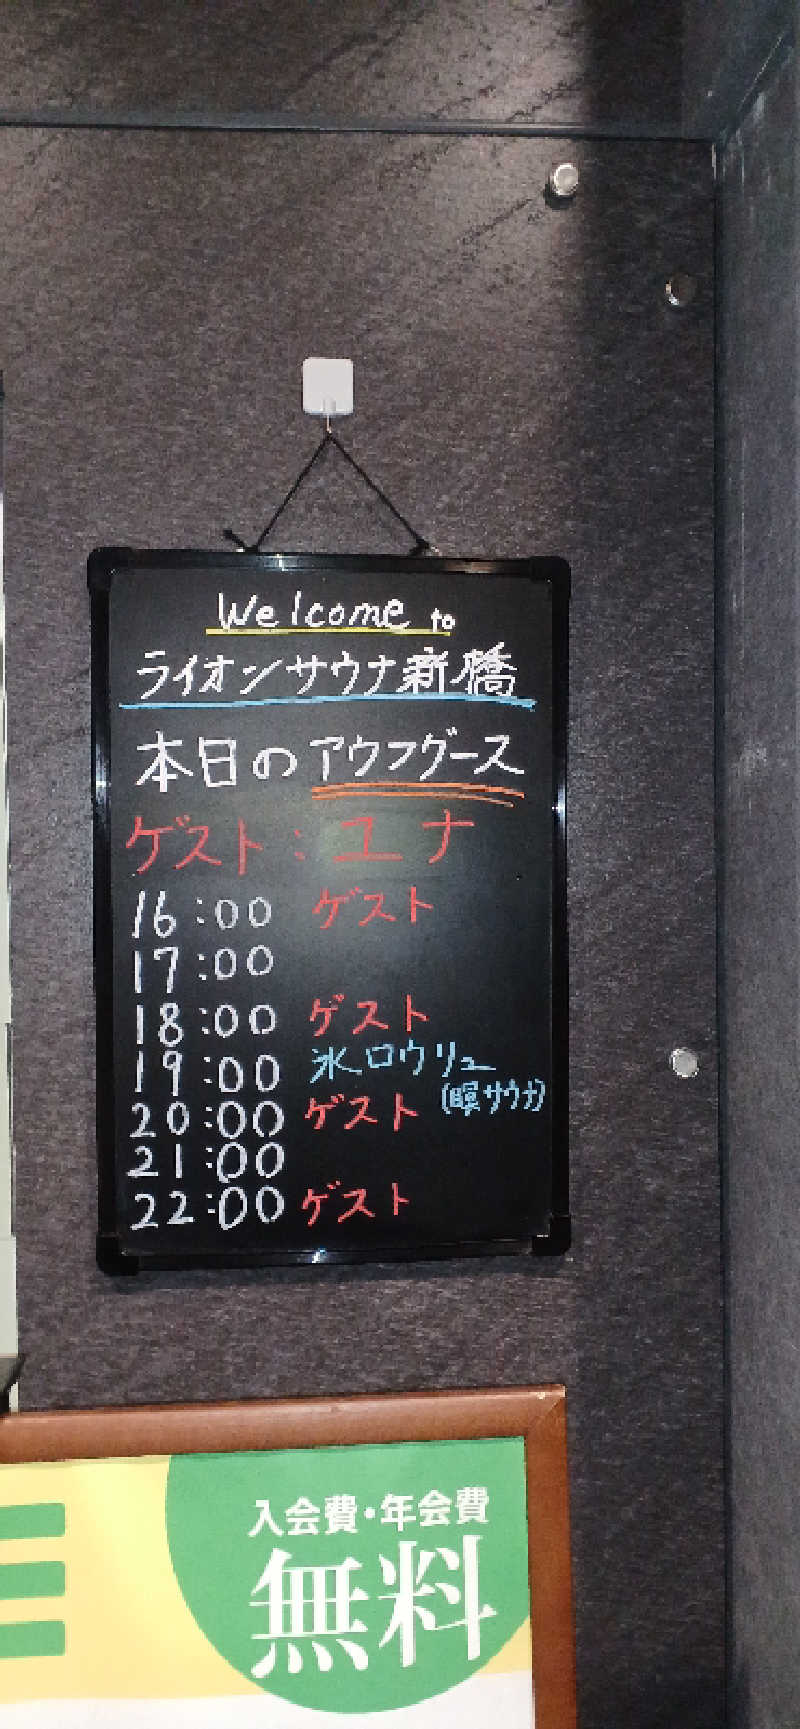 Welcome to
ライオンサウナ新橋
本日のアウフグース
ゲスト:ユナ
16:00 ゲスト
17:00
18:00 ゲスト
19:00 氷ロウリュ
(瞑サウナ)
20:00 ゲスト
21:00
22:00 ゲスト
入会費・年会費
無料